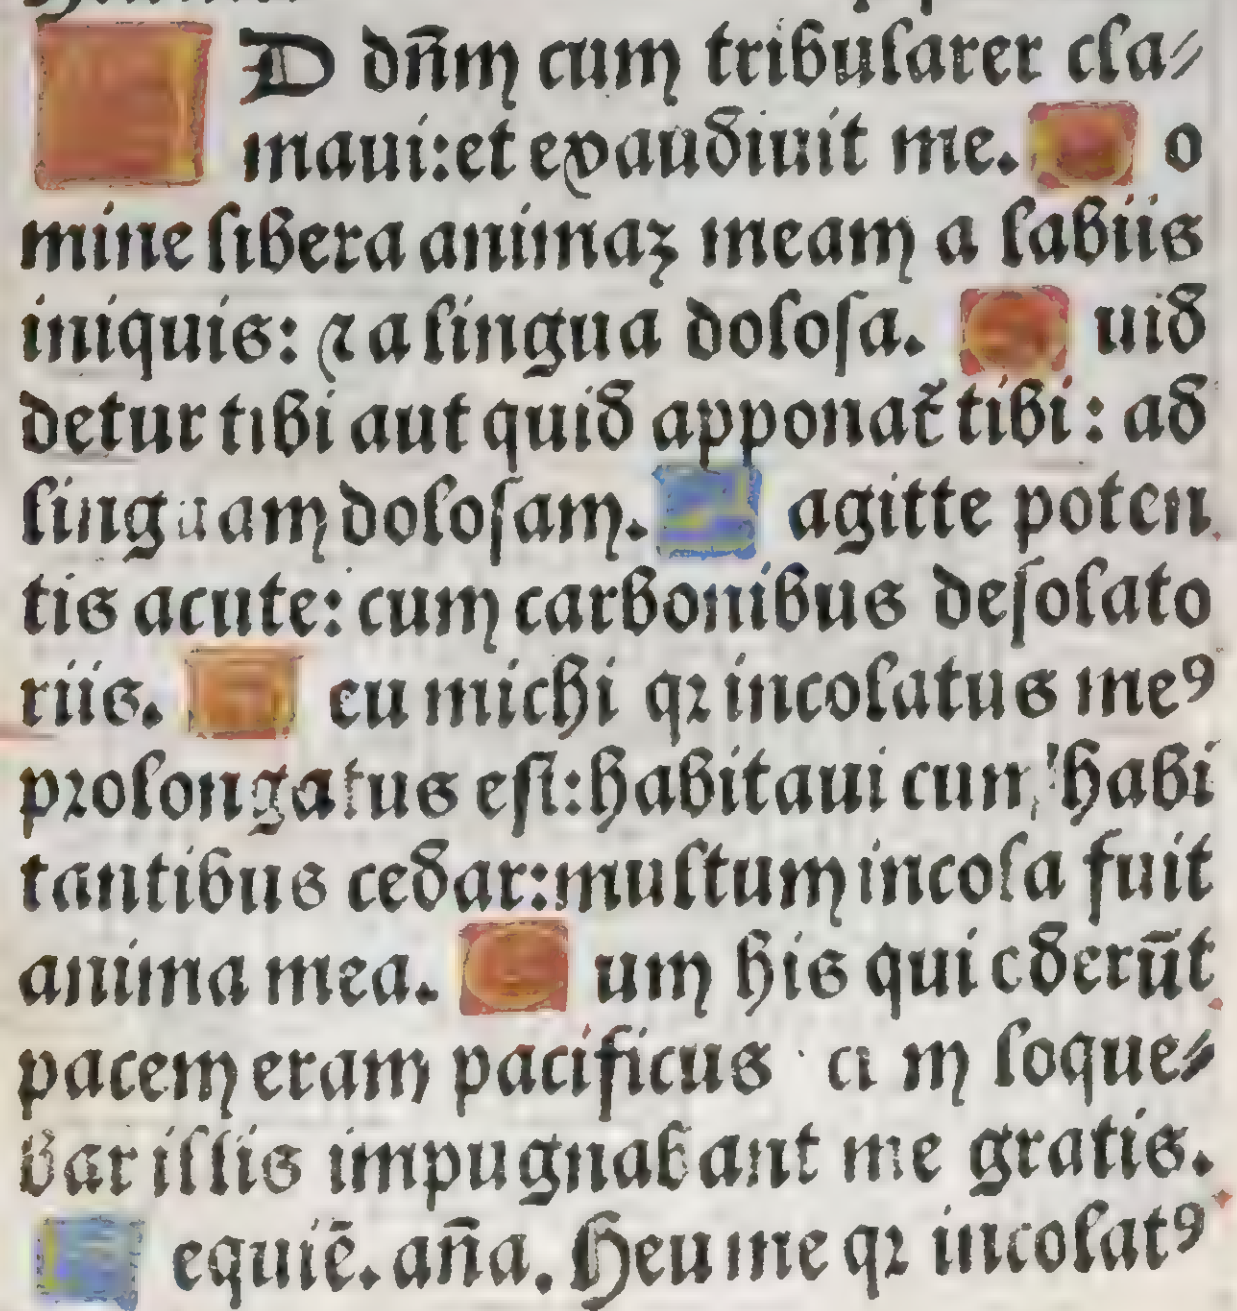 AD dñm cum tribularer cla⸗
maui:et exaudiuit me. Do
mine libera animaȝ meam a labiis
iniquis: ⁊ a lingua dolosa. Quid
detur tibi aut quid apponat̃ tibi: ad
linguam dolosam. Sagitte poten
tis acute: cum carbonibus desolato
riis. Heu michi qꝛ incolatus meꝰ
prolongatus est: habitaui cum habi
tantibus cedar:multum incola fuit
anima mea. Cum his qui oderūt
pacem eram pacificus cum loque⸗
bar illis impugnabant me gratis.
Requiē. aña. Heu me qꝛ incolatꝰ